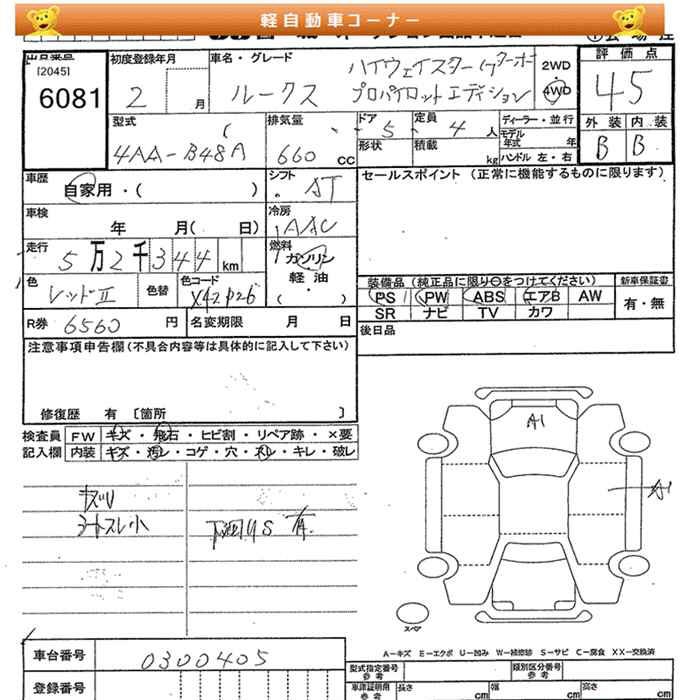 軽自動車コーナー
出品番号 初度登録年月 車名・グレード ハイウェイスターGターボ 2WD 評価点
[2045]
6081 2 月 ルークス プロパイロットエディション 4WD 45
型式 排気量 ドア 5 定員 4 人 ディーラー・並行 外装 内装
モデル年式 年
4AA-B48A 660 cc 形状 積載 kg ハンドル 左・右 B B
車歴 自家用・( ) シフト AT セールスポイント (正常に機能するものに限ります)
車検 年 月( 日) 冷房 AAC
走行 5万2千344 km 燃料 ガソリン
軽油
( )
色 レッドII 色替 色コード 装備品 (純正品に限り○をつけてください) 新車保証書
PS PW ABS エアB AW 有・無
SR ナビ TV カワ
R券 6560 円 名変期限 月 日 後日品
注意事項申告欄(不具合内容等は具体的に記入して下さい)
修復歴 有 [箇所 ]
検査員 FW キズ・飛石・ヒビ割・リペア跡・×要
記入欄 内装 キズ・汚レ・コゲ・穴・スレ・キレ・破レ
A1
A1
シートスレ小
下廻りS 有
スペア
A-キズ E-エクボ U-凹み W-補修跡 S-サビ C-腐食 XX-交換済
車台番号 0300405 型式指定番号 参考 類別区分番号 参考
登録番号 車庫証明用 参考 長さ cm 幅 cm 高さ cm